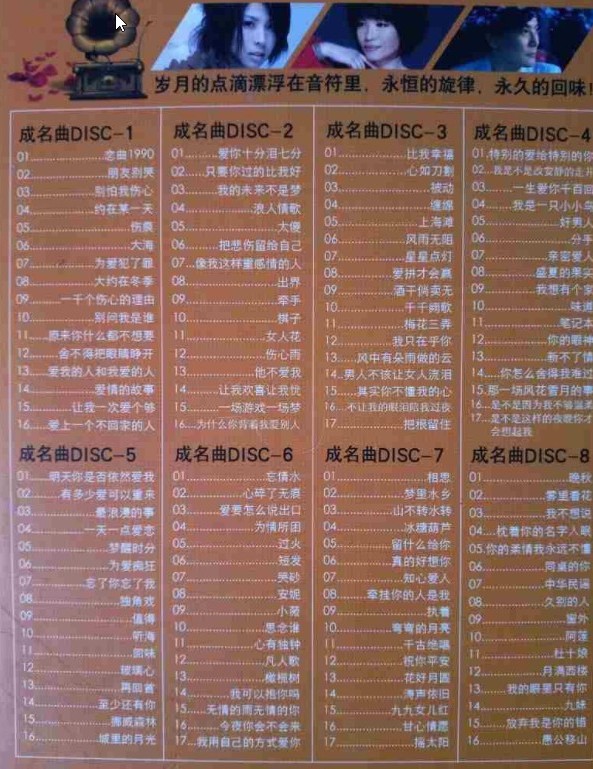 岁月的点滴漂浮在音符里，永恒的旋律，永久的回味!
成名曲DISC-1
01...............恋曲1990
02...............朋友别哭
03...............别怕我伤心
04...............约在某一天
05...............伤痕
06...............大海
07...............为爱犯了罪
08...............大约在冬季
09...............一千个伤心的理由
10...............别问我是谁
11...............原来你什么都不想要
12...............舍不得把眼睛睁开
13...............爱我的人和我爱的人
14...............爱情的故事
15...............让我一次爱个够
16...............爱上一个不回家的人
成名曲DISC-2
01...............爱你十分泪七分
02...............只要你过的比我好
03...............我的未来不是梦
04...............浪人情歌
05...............太傻
06...............把悲伤留给自己
07...............像我这样重感情的人
08...............出界
09...............牵手
10...............棋子
11...............女人花
12...............伤心雨
13...............他不爱我
14...............让我欢喜让我忧
15...............一场游戏一场梦
16...............为什么你背着我爱别人
成名曲DISC-3
01...............比我幸福
02...............心如刀割
03...............被动
04...............缠绵
05...............上海滩
06...............风雨无阻
07...............星星点灯
08...............爱拼才会赢
09...............酒干倘卖无
10...............千千阙歌
11...............梅花三弄
12...............我只在乎你
13...............风中有朵雨做的云
14...............男人不该让女人流泪
15...............其实你不懂我的心
16...............不让我的眼泪陪我过夜
17...............把根留住
成名曲DISC-4
01.特别的爱给特别的你
02...我是不是该安静的走开
03...............一生爱你千百回
04...............我是一只小小鸟
05...............好男人
06...............分手
07...............亲密爱人
08...............盛夏的果实
09...............我想有个家
10...............味道
11...............笔记本
12...............你的眼神
13...............新不了情
14...............你怎么舍得我难过
15.那一场风花雪月的事
16...是不是因为我不够温柔
17...是不是这样的夜晚你才
会想起我
成名曲DISC-5
01...............明天你是否依然爱我
02...............有多少爱可以重来
03...............最浪漫的事
04...............一天一点爱恋
05...............梦醒时分
06...............为爱痴狂
07...............忘了你忘了我
08...............独角戏
09...............值得
10...............听海
11...............回味
12...............玻璃心
13...............再回首
14...............至少还有你
15...............挪威森林
16...............城里的月光
成名曲DISC-6
01...............忘情水
02...............心碎了无痕
03...............爱要怎么说出口
04...............为情所困
05...............过火
06...............短发
07...............哭砂
08...............安妮
09...............小薇
10...............思念谁
11...............心有独钟
12...............凡人歌
13...............橄榄树
14...............我可以抱你吗
15...............无情的雨无情的你
16...............今夜你会不会来
17...............我用自己的方式爱你
成名曲DISC-7
01...............相思
02...............梦里水乡
03...............山不转水转
04...............冰糖葫芦
05...............留什么给你
06...............真的好想你
07...............知心爱人
08...............牵挂你的人是我
09...............执着
10...............弯弯的月亮
11...............千古绝唱
12...............祝你平安
13...............花好月圆
14...............涛声依旧
15...............九九女儿红
16...............甘心情愿
17...............摇太阳
成名曲DISC-8
01...............晚秋
02...............雾里看花
03...............我不想说
04...............枕着你的名字入眠
05.你的柔情我永远不懂
06...............同桌的你
07...............中华民谣
08...............久别的人
09...............窗外
10...............阿莲
11...............杜十娘
12...............月满西楼
13...............我的眼里只有你
14...............九妹
15...............放弃我是你的错
16...............愚公移山